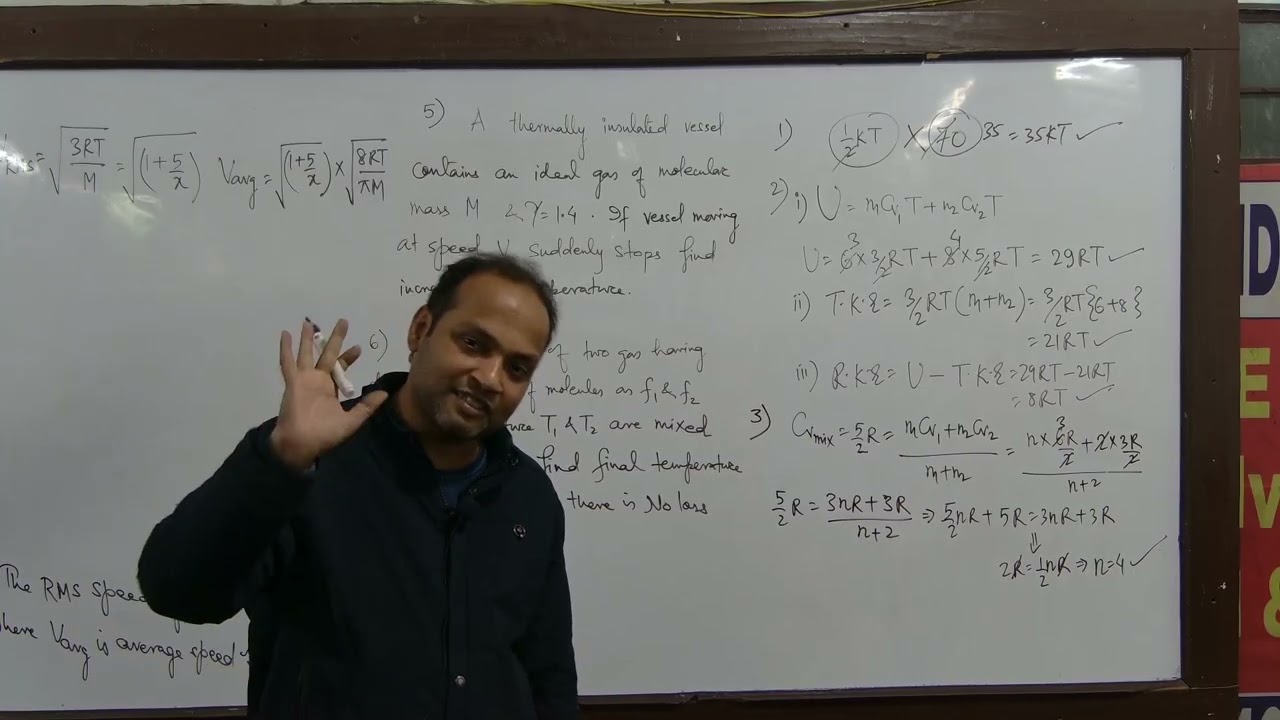 rms = √(3RT/M) = √(1+5/x) Vavg = √(1+5/x) × √(8RT/πM)
The RMS speed
where Vavg is average speed
5) A thermally insulated vessel
contains an ideal gas of molecular
mass M & γ=1.4. If vessel moving
at speed V suddenly stops find
6) of two gas having
molecules as f₁ & f₂
T₁ & T₂ are mixed
find final temperature
there is No loss
1) ½KT × 70 35 = 35KT ✓
2) i) U = n₁Cv₁T + n₂Cv₂T
U = 6 3 × 3/2RT + 8 4 × 5/2RT = 29RT ✓
ii) T.K.E = 3/2RT(n₁+n₂) = 3/2RT{6+8}
= 21RT ✓
iii) R.K.E = U – T.K.E = 29RT – 21RT
= 8RT ✓
3) Cvmix = 5/2R = (n₁Cv₁+n₂Cv₂)/(n₁+n₂) = (n × 6 3 R/2 + 2 × 3R/2)/(n+2)
5/2R = (3nR+3R)/(n+2) ⇒ 5/2nR + 5R = 3nR + 3R
⇓
2R = ½nR ⇒ n=4 ✓